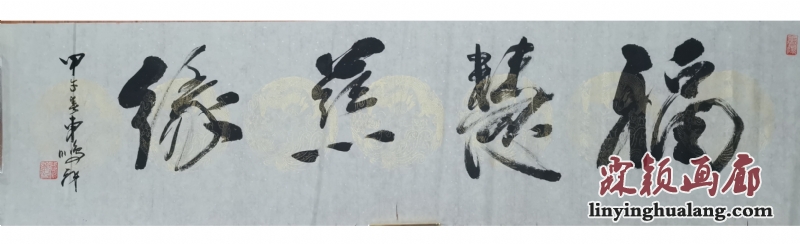 福慧慈缘
甲午
霖颖画廊
linyinghualang.com